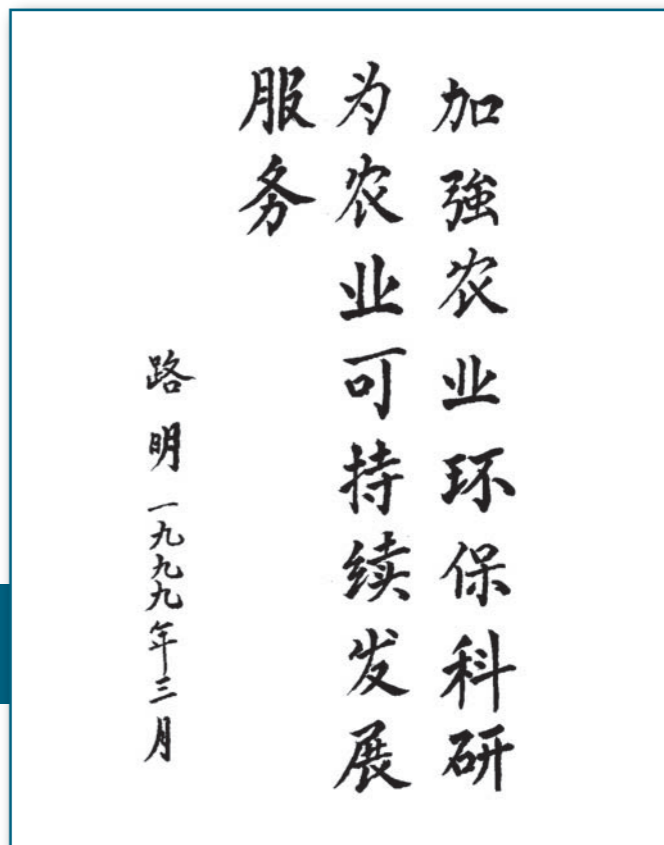 加強农业环保科研
为农业可持续发展
服务
路明 一九九九年三月